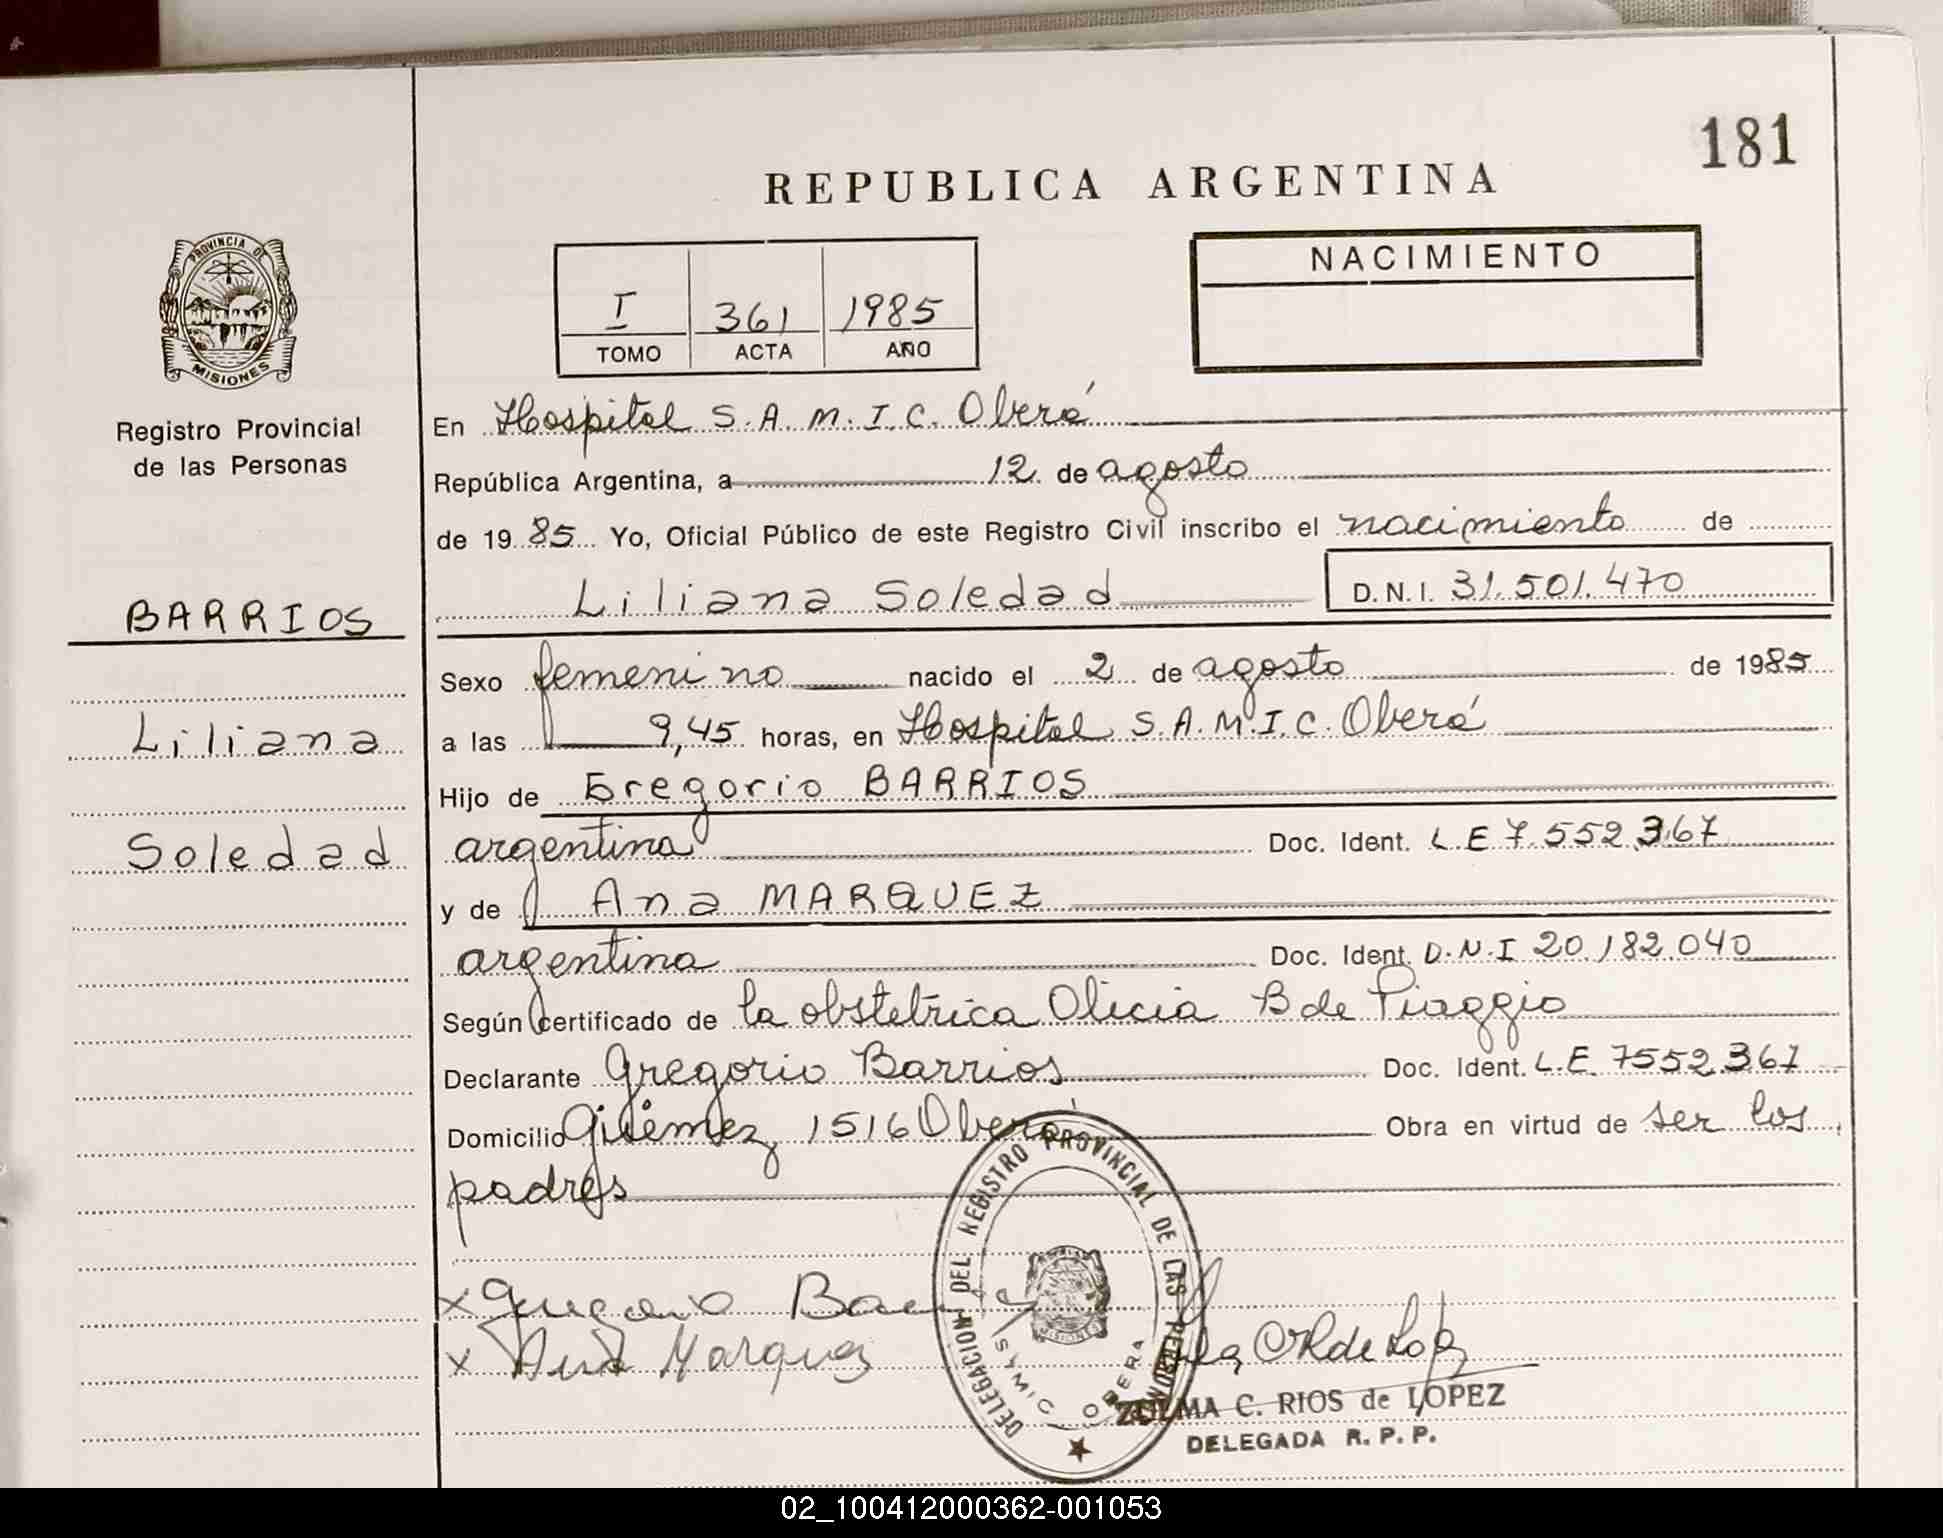 181
REPUBLICA ARGENTINA
PROVINCIA DE
MISIONES
Registro Provincial
de las Personas
I 361 1985
TOMO ACTA AÑO
NACIMIENTO
BARRIOS
Liliana
Soledad
En Hospital S.A.M.I.C. Oberá
República Argentina, a 12 de agosto
de 1985 Yo, Oficial Público de este Registro Civil inscribo el nacimiento de
Liliana Soledad D.N.I. 31.501.470
Sexo femenino nacido el 2 de agosto de 1985
a las 9,45 horas, en Hospital S.A.M.I.C. Oberá
Hijo de Gregorio BARRIOS
argentina Doc. Ident. L.E 7.552.367
y de Ana MARQUEZ
argentina Doc. Ident. D.N.I 20.182.040
Según certificado de la obstetrica Olicia B de Piaggio
Declarante Gregorio Barrios Doc. Ident. L.E. 7552.367
Domicilio 1516 Oberá Obra en virtud de ser los
padres
x Gregorio
x Ana Marquez
DELEGACION DEL REGISTRO PROVINCIAL DE LAS PERSONAS
MISIONES
OBERA
ZULMA C. RIOS de LOPEZ
DELEGADA R. P. P.
02_100412000362-001053